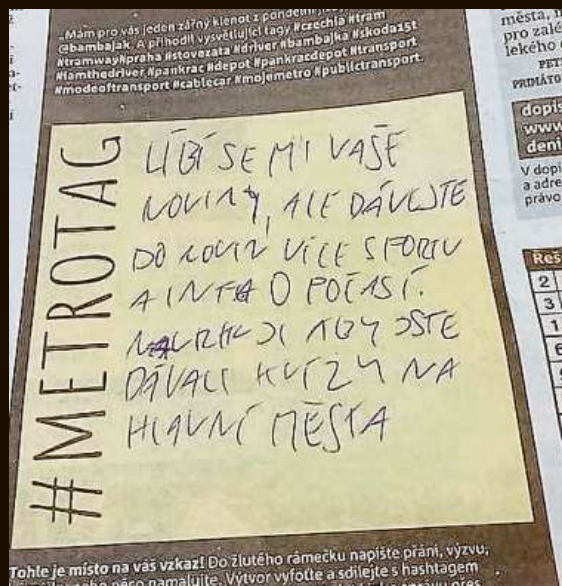 „Mám pro vás jeden zářný klenot z pondělní
@bambajak. A přihodil vysvětlující tagy #czechla #tram
#tramway #praha #stovezata #driver #bambajka #skoda15t
#iamthedriver #pankrac #depot #pankracdepot #transport
#modeoftransport #cablecar #mojemetro #publictransport.
#METROTAG
LÍBÍ SE MI VAŠE
NOVINY, ALE DÁVEJTE
DO NOVIN VÍCE SPORTU
A INFA O POČASÍ.
NAVRHUJI ABY JSTE
DÁVALI KVÍZY NA
HLAVNÍ MĚSTA
Tohle je místo na váš vzkaz! Do žlutého rámečku napište přání, výzvu,
nebo něco namalujte. Výtvor vyfoťte a sdílejte s hashtagem
města,
pro zalé
lekého
PET
PRIMÁTO
dopis
www
deni
V dopi
a adre
právo
Reš
2
3
1
6